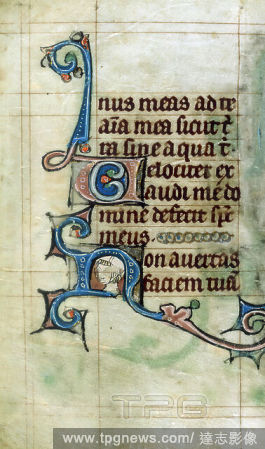 nus meas ad te
aīa mea sicut t̄
ra sine aqua t̄.
Velociter ex
audi me do
mine defecit sp̄c
meus.
Non avertas
faciem tuā
TPG
www.tpgnews.com/ 達志影像